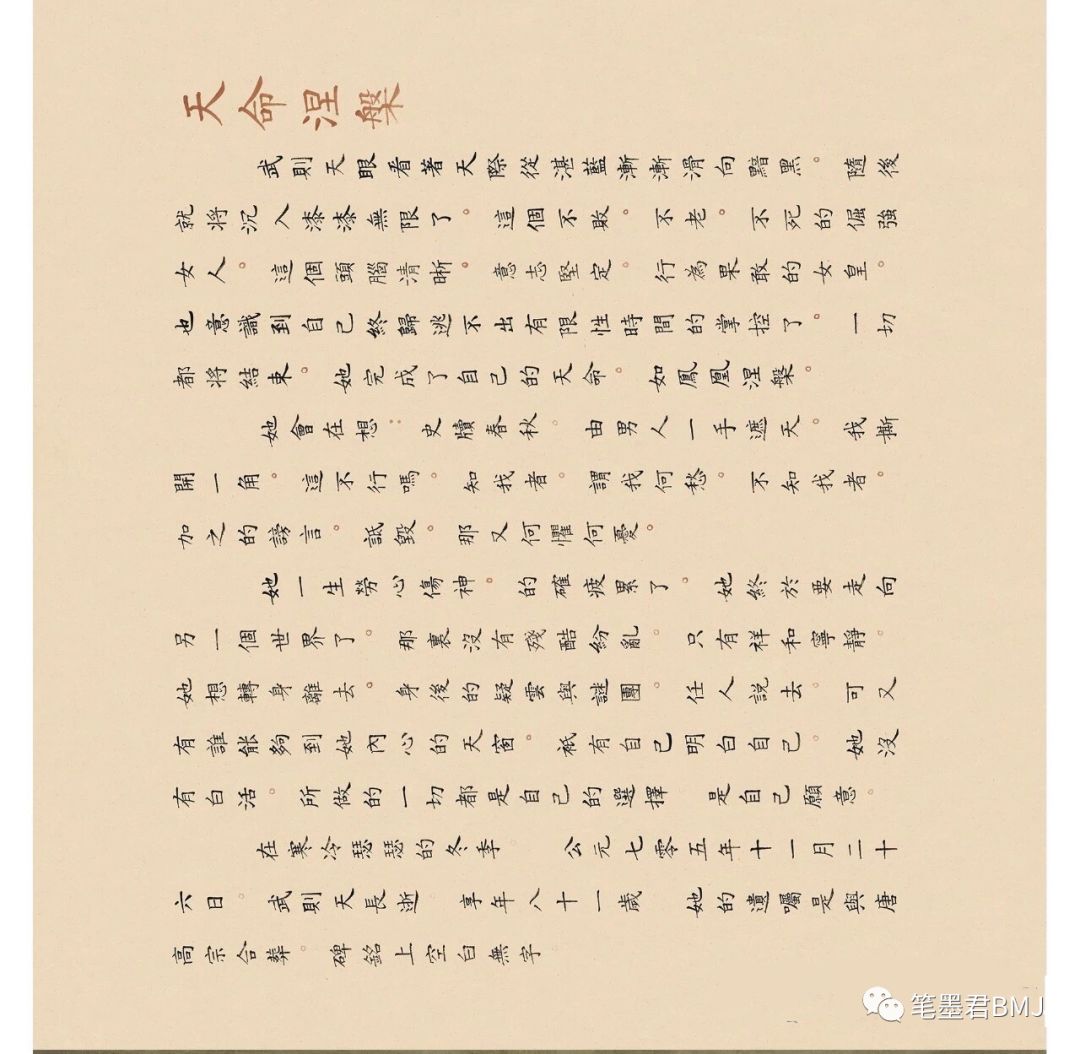 天命涅槃
武則天眼看著天際從湛藍漸漸滑向黯黑。隨後
就将沉入漆漆無限了。這個不敗。不老。不死的倔強
女人。這個頭腦清晰。意志堅定。行為果敢的女皇。
也意識到自己終歸逃不出有限性時間的掌控了。一切
都将結束。她完成了自己的天命。如鳳凰涅槃。
她會在想：史牘春秋。由男人一手遮天。我撕
開一角。這不行嗎。知我者。謂我何愁。不知我者。
加之的謗言。詆毀。那又何懼何憂。
她一生勞心傷神。的確疲累了。她終於要走向
另一個世界了。那裏沒有殘酷紛亂。只有祥和寧靜。
她想轉身離去。身後的疑雲與謎團。任人説去。可又
有誰能夠到她內心的天窗。衹有自己明白自己。她沒
有白活。所做的一切都是自己的選擇 是自己願意。
在寒冷瑟瑟的冬季 公元七零五年十一月二十
六日。武則天長逝。享年八十一歲 她的遺囑是與唐
高宗合葬。碑銘上空白無字
笔墨君BMJ